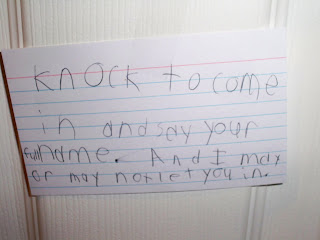 Knock to come
in and say your
full name. And I may
or may not let you in.